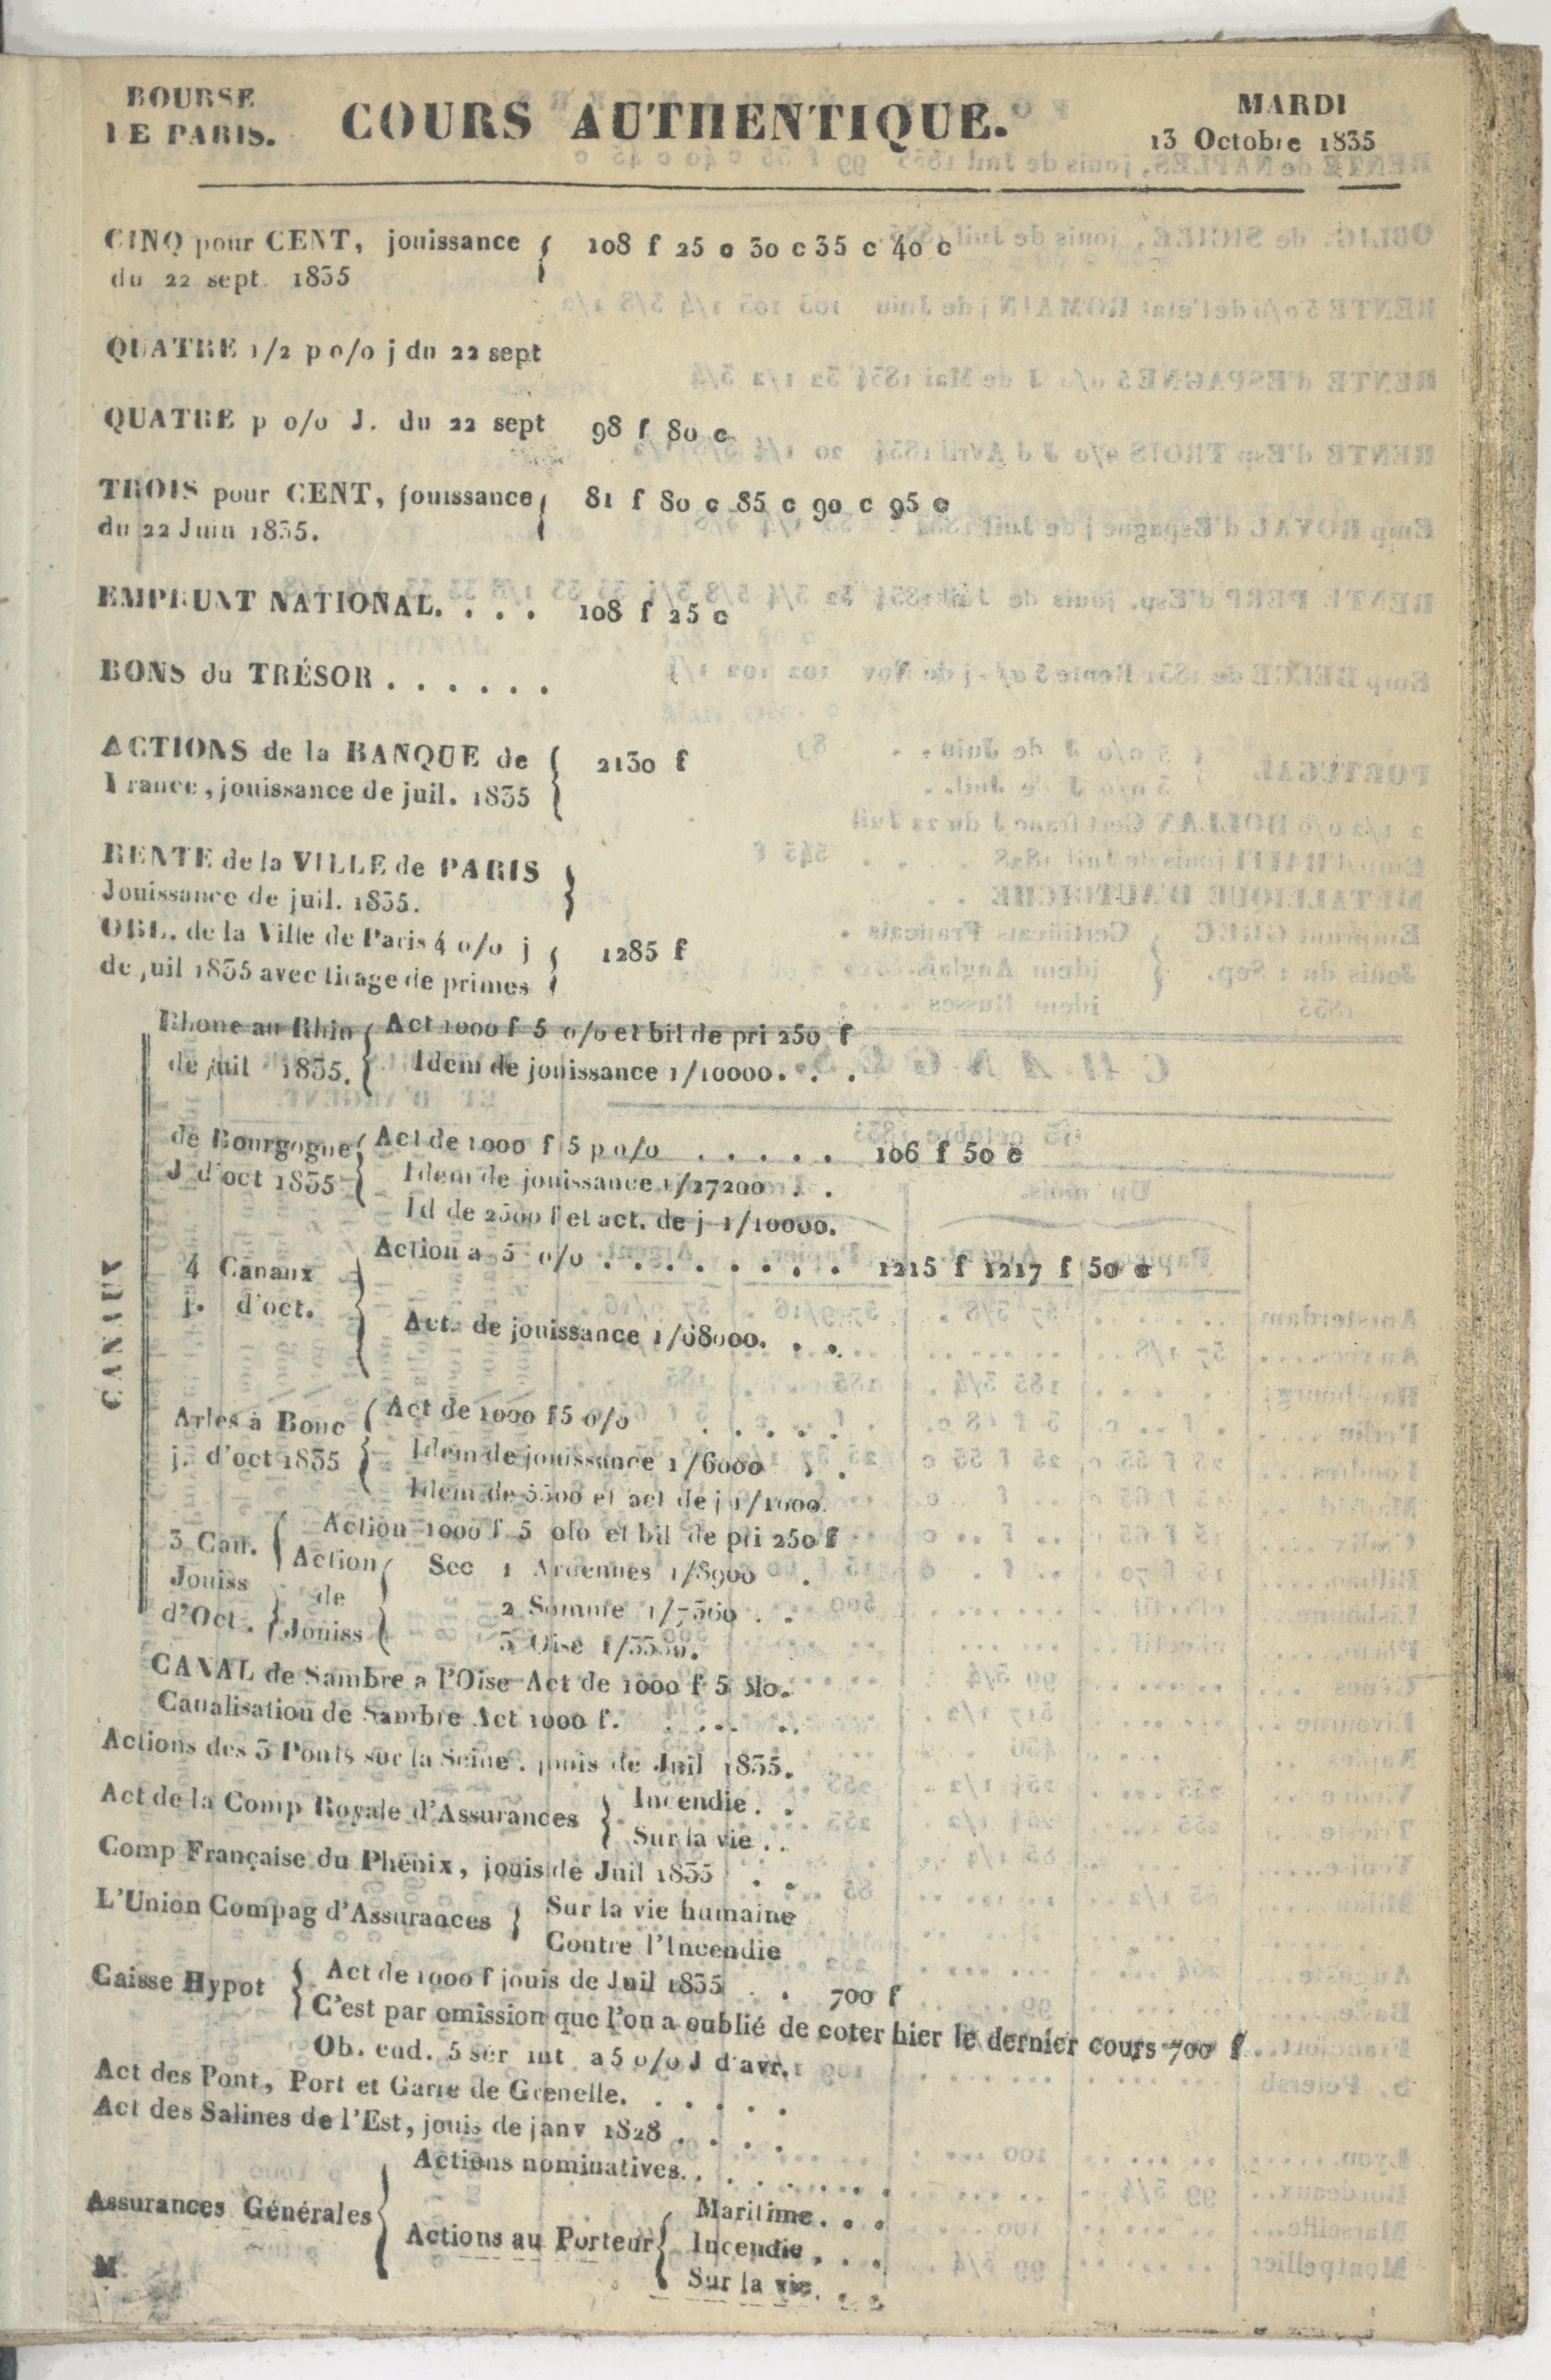 BOURSE
DE PARIS.
COURS AUTHENTIQUE.
MARDI
13 Octobre 1835
CINQ pour CENT, jouissance { 108 f 25 c 30 c 35 c 40 c
du 22 sept. 1835
QUATRE 1/2 p o/o j du 22 sept
QUATRE p o/o J. du 22 sept 98 f 80 c
TROIS pour CENT, jouissance { 81 f 80 c 85 c 90 c 95 c
du 22 Juin 1835.
EMPRUNT NATIONAL. . . . 108 f 25 c
BONS du TRÉSOR . . . . . .
ACTIONS de la BANQUE de { 2130 f
France, jouissance de juil. 1835
RENTE de la VILLE de PARIS }
Jouissance de juil. 1835.
OBL. de la Ville de Paris 4 o/o j { 1285 f
de juil 1835 avec tirage de primes
CANAUX
Rhone au Rhin { Act 1000 f 5 o/o et bil de pri 250 f
de juil 1835. Idem de jouissance 1/10000. . .
de Bourgogne { Act de 1000 f 5 p o/o . . . . . 106 f 50 c
J d'oct 1835 Idem de jouissance 1/27200 . .
Id de 2500 f et act. de j 1/10000.
4 Canaux { Action a 5 o/o . . . . . . . . 1215 f 1217 f 50 c
j. d'oct. Act. de jouissance 1/68000. . .
Arles à Bouc { Act de 1000 f 5 o/o . . . . .
j. d'oct 1835 Idem de jouissance 1/6000 . .
Idem de 5500 et act de j 1/1000.
3 Can. { Action 1000 f 5 o/o et bil de pri 250 f
Jouiss Action { Sec 1 Ardennes 1/8900 .
d'Oct. de Jouiss 2 Somme 1/7560 . .
3 Oise 1/3539.
CANAL de Sambre a l'Oise Act de 1000 f 5 o/o.
Canalisation de Sambre Act 1000 f. . ... ..
Actions des 3 Ponts sur la Seine. jouis de Juil 1835.
Act de la Comp Royale d'Assurances } Incendie. .
Sur la vie . .
Comp Française du Phénix, jouis de Juil 1835 . .
L'Union Compag d'Assurances } Sur la vie humaine
Contre l'Incendie
Caisse Hypot { Act de 1000 f jouis de Juil 1835 . . 700 f
C'est par omission que l'on a oublié de coter hier le dernier cours 700 f
Ob. end. 5 ser int a 5 o/o J d'avr.
Act des Pont, Port et Garre de Grenelle. . . . . .
Act des Salines de l'Est, jouis de janv 1828 . . . .
Assurances Générales { Actions nominatives. . . . . . . .
Actions au Porteur { Maritime. . .
Incendie. . .
Sur la vie. . .
M